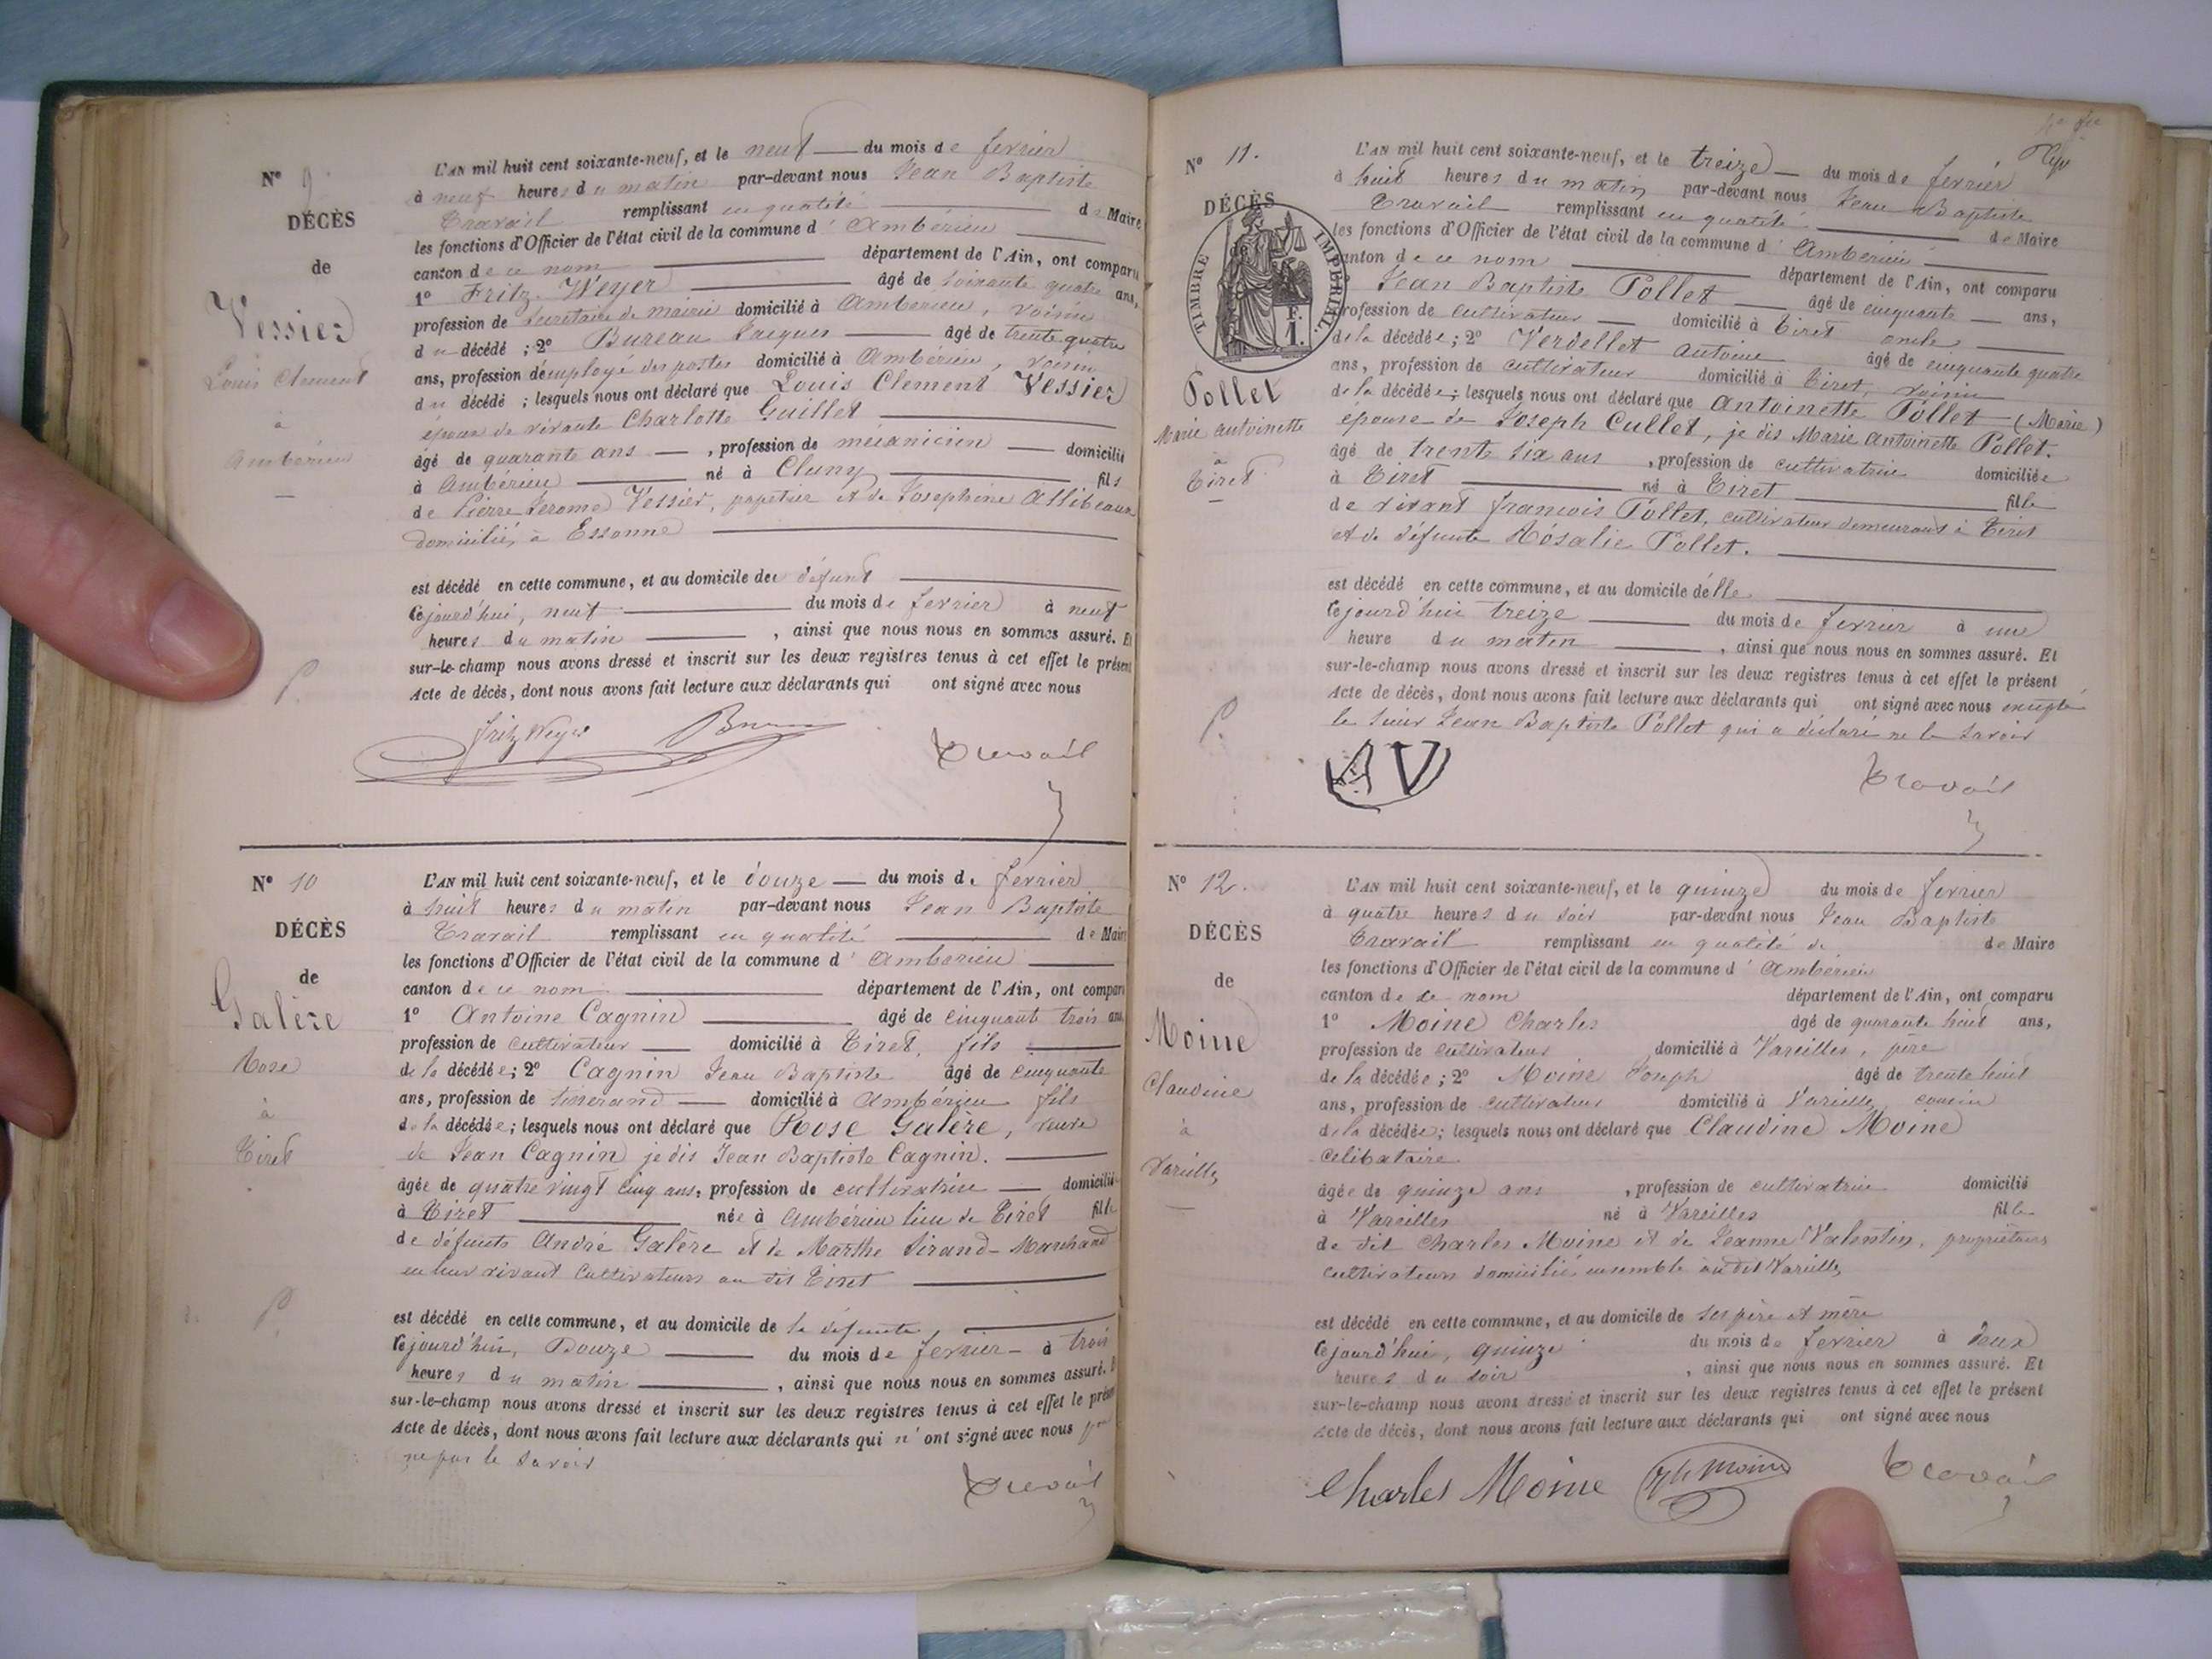 N° 9.
DÉCÈS
de
Vessier
Louis Clement
à
Ambérieu
P.
L'AN mil huit cent soixante-neuf, et le neuf du mois de fevrier
à neuf heures du matin par-devant nous Jean Baptiste
Travail remplissant en qualité de Maire
les fonctions d'Officier de l'état civil de la commune d'Ambérieu
canton de ce nom département de l'Ain, ont comparu
1° Fritz Weyer âgé de soixante quatre ans,
profession de secretaire de mairie domicilié à Amberieu, voisin
du décédé ; 2° Bureau Jacques âgé de trente quatre
ans, profession d'employé des postes domicilié à Ambérieu, voisin
du décédé ; lesquels nous ont déclaré que Louis Clement Vessier
époux de vivante Charlotte Guillet
âgé de quarante ans, profession de mécanicien domicilié
à Ambérieu né à Cluny fils
de Pierre Jerome Vessier, papetier et de Josephine Allibeaux
domiciliés à Essonne
est décédé en cette commune, et au domicile de défunt
cejourd'hui, neuf du mois de fevrier à neuf
heures du matin, ainsi que nous nous en sommes assuré. Et
sur-le-champ nous avons dressé et inscrit sur les deux registres tenus à cet effet le présent
Acte de décès, dont nous avons fait lecture aux déclarants qui ont signé avec nous
Fritz Weyer Travail
N° 10
DÉCÈS
de
Galère
Rose
à
Tiret
P.
L'AN mil huit cent soixante-neuf, et le douze du mois de fevrier
à huit heures du matin par-devant nous Jean Baptiste
Travail remplissant en qualité de Maire
les fonctions d'Officier de l'état civil de la commune d'Amberieu
canton de ce nom département de l'Ain, ont comparu
1° Antoine Cagnin âgé de cinquante trois ans,
profession de cultivateur domicilié à Tiret, fils
de la décédée; 2° Cagnin Jean Baptiste âgé de cinquante
ans, profession de tisserand domicilié à Ambérieu fils
de la décédée; lesquels nous ont déclaré que Rose Galère, veuve
de Jean Cagnin je dis Jean Baptiste Cagnin.
âgée de quatre vingt cinq ans, profession de cultivatrice domicilié
à Tiret née à Ambérieu lieu de Tiret fille
de défunts André Galère et de Marthe Sirand-Marchand
en leur vivant cultivateurs au dit Tiret
est décédé en cette commune, et au domicile de la défunte,
cejourd'hui, Douze du mois de fevrier à trois
heures du matin, ainsi que nous nous en sommes assuré.
sur-le-champ nous avons dressé et inscrit sur les deux registres tenus à cet effet le présent
Acte de décès, dont nous avons fait lecture aux déclarants qui n'ont signé avec nous pour
ne pas le savoir
Travail
N° 11.
DÉCÈS
de
TIMBRE IMPÉRIAL.
1 F.
Pollet
Marie Antoinette
à
Tiret
P.
L'AN mil huit cent soixante-neuf, et le treize du mois de fevrier
à huit heures du matin par-devant nous Jean Baptiste
Travail remplissant en qualité de Maire
les fonctions d'Officier de l'état civil de la commune d'Ambérieu
canton de ce nom département de l'Ain, ont comparu
Jean Baptiste Pollet âgé de cinquante ans,
profession de cultivateur domicilié à Tiret oncle
de la décédée; 2° Verdellet Antoine âgé de cinquante quatre
ans, profession de cultivateur domicilié à Tiret, voisin
de la décédée; lesquels nous ont déclaré que Antoinette Pollet (Marie)
epouse de Joseph Cullet, je dis Marie Antoinette Pollet.
âgé de trente six ans, profession de cultivatrice domiciliée
à Tiret né à Tiret fille
de vivant francois Pollet, cultivateur demeurant à Tiret
et de défunte Rosalie Pollet.
est décédé en cette commune, et au domicile d'elle
cejourd'hui treize du mois de fevrier à une
heure du matin, ainsi que nous nous en sommes assuré. Et
sur-le-champ nous avons dressé et inscrit sur les deux registres tenus à cet effet le présent
Acte de décès, dont nous avons fait lecture aux déclarants qui ont signé avec nous excepté
le sieur Jean Baptiste Pollet qui a déclaré ne le savoir
AV Travail
N° 12.
DÉCÈS
de
Moine
Claudine
à
Vareilles
L'AN mil huit cent soixante-neuf, et le quinze du mois de fevrier
à quatre heures du soir par-devant nous Jean Baptiste
Travail remplissant en qualité de de Maire
les fonctions d'Officier de l'état civil de la commune d'Ambérieu
canton de ce nom département de l'Ain, ont comparu
1° Moine Charles âgé de quarante huit ans,
profession de cultivateur domicilié à Vareilles, père
de la décédée; 2° Moine Joseph âgé de trente huit
ans, profession de cultivateur domicilié à Vareilles cousin
de la décédée; lesquels nous ont déclaré que Claudine Moine
celibataire
âgée de quinze ans, profession de cultivatrice domicilié
à Vareilles né à Vareilles fille
de dit Charles Moine et de Jeanne Valentin, propriétaires
cultivateurs domiciliés ensemble au dit Vareilles
est décédé en cette commune, et au domicile de ses père et mère
cejourd'hui, quinze du mois de fevrier à deux
heures du soir, ainsi que nous nous en sommes assuré. Et
sur-le-champ nous avons dressé et inscrit sur les deux registres tenus à cet effet le présent
Acte de décès, dont nous avons fait lecture aux déclarants qui ont signé avec nous
Charles Moine Jph Moine Travail